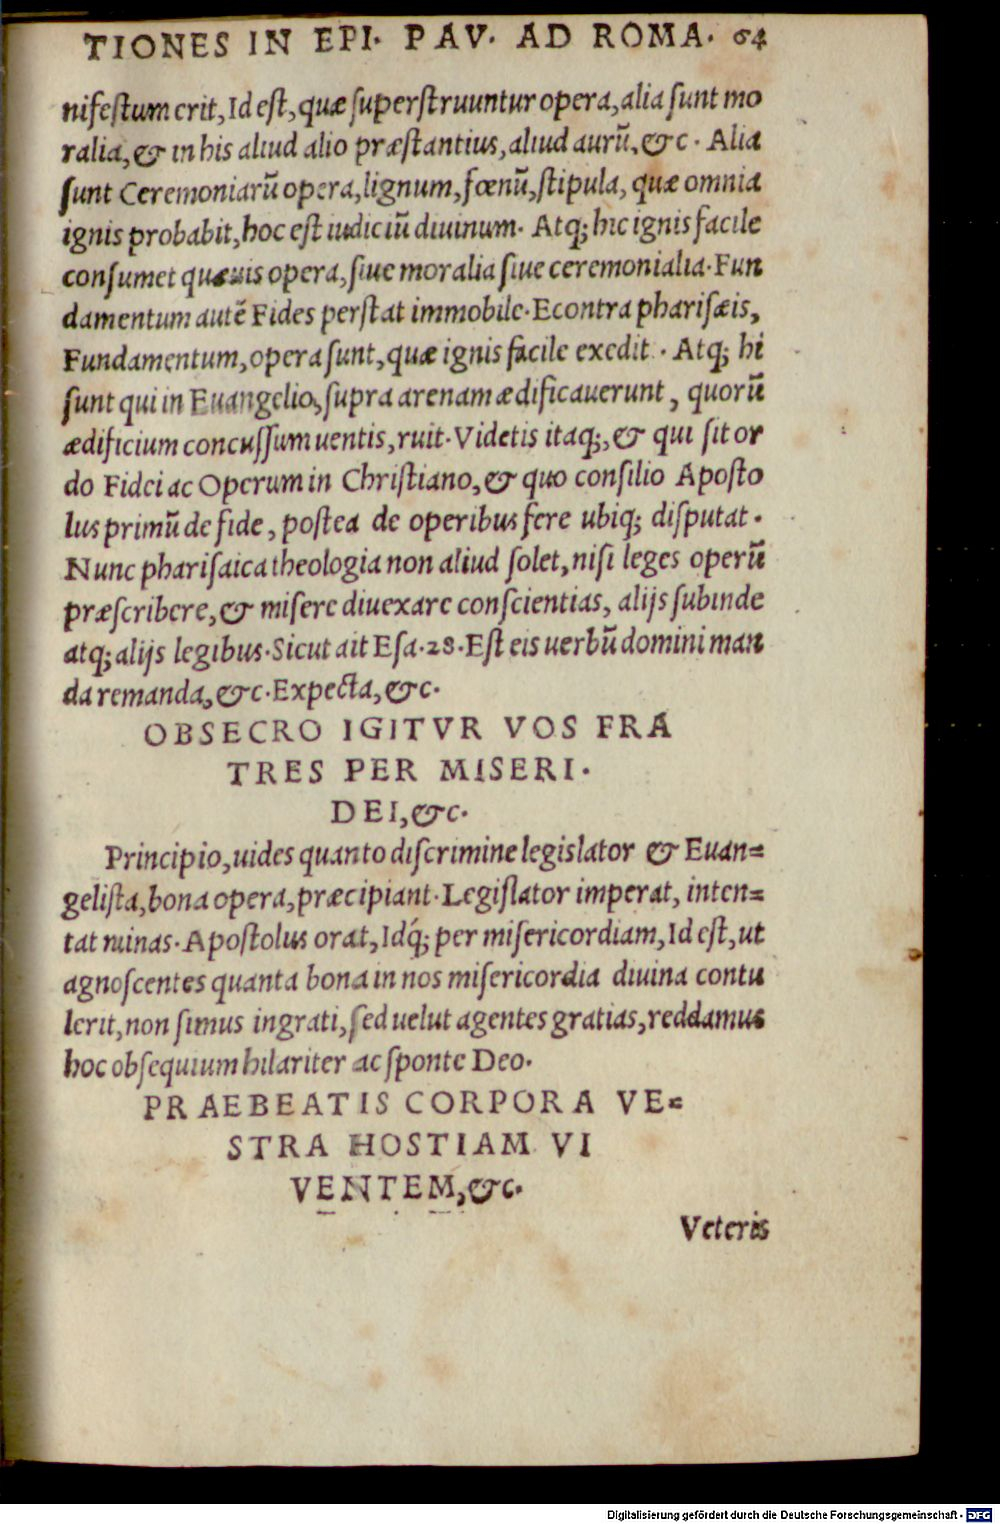 TIONES IN EPI· PAV· AD ROMA· 64
nifeſtum erit, Id eſt, quæ ſuperſtruuntur opera, alia ſunt mo
ralia, & in his aliud alio præſtantius, aliud aurũ, &c · Alia
ſunt Ceremoniarũ opera, lignum, fœnũ, ſtipula, quæ omnia
ignis probabit, hoc eſt iudiciũ diuinum· Atq; hic ignis facile
conſumet quæuis opera, ſiue moralia ſiue ceremonialia· Fun
damentum autẽ Fides perſtat immobile· Econtra phariſæis,
Fundamentum, opera ſunt, quæ ignis facile exedit · Atq; hi
ſunt qui in Euangelio, ſupra arenam ædificauerunt, quorũ
ædificium concuſſum uentis, ruit· Videtis itaq;, & qui ſit or
do Fidei ac Operum in Chriſtiano, & quo conſilio Apoſto
lus primũ de fide, poſtea de operibus fere ubiq; diſputat·
Nunc phariſaica theologia non aliud ſolet, niſi leges operũ
præſcribere, & miſere diuexare conſcientias, alijs ſubinde
atq; alijs legibus· Sicut ait Eſa· 28· Eſt eis uerbũ domini man
da remanda, &c· Expecta, &c·
OBSECRO IGITVR VOS FRA
TRES PER MISERI·
DEI, &c·
Principio, uides quanto diſcrimine legislator & Euan=
geliſta, bona opera, præcipiant· Legiſlator imperat, inten=
tat minas· Apoſtolus orat, Idq́; per miſericordiam, Id eſt, ut
agnoſcentes quanta bona in nos miſericordia diuina contu
lerit, non ſimus ingrati, ſed uelut agentes gratias, reddamus
hoc obſequium hilariter ac ſponte Deo·
PRAEBEATIS CORPORA VE=
STRA HOSTIAM VI
VENTEM, &c·
Veteris
Digitalisierung gefördert durch die Deutsche Forschungsgemeinschaft - DFG